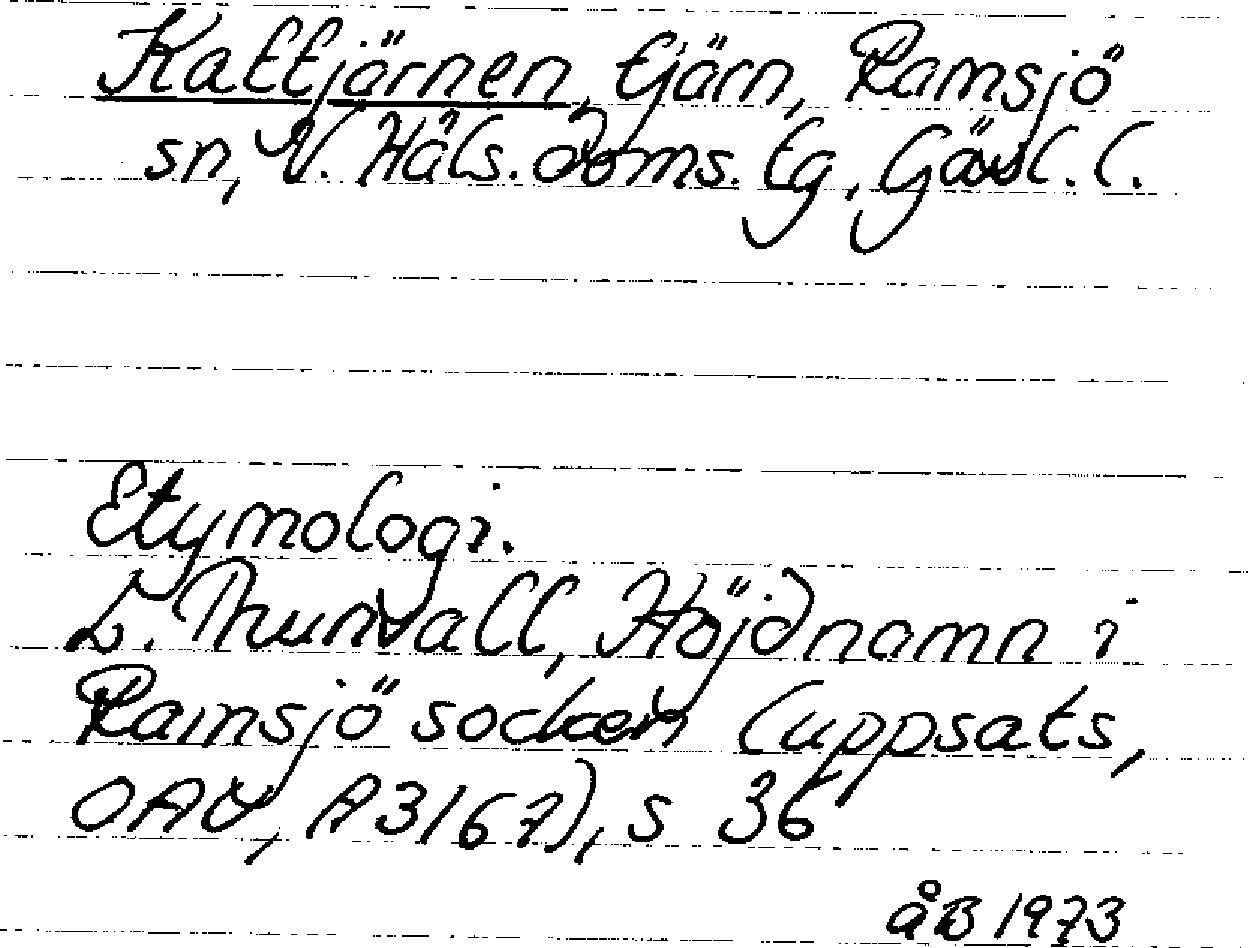 Kattjärnen, tjärn, Ramsjö
sn, V. Häls. doms. tg, Gävl. l.
Etymologi.
L. Thunvall, Höjdnamn i
Ramsjö socken (uppsats,
OAU, A3167), s 36
åB 1973